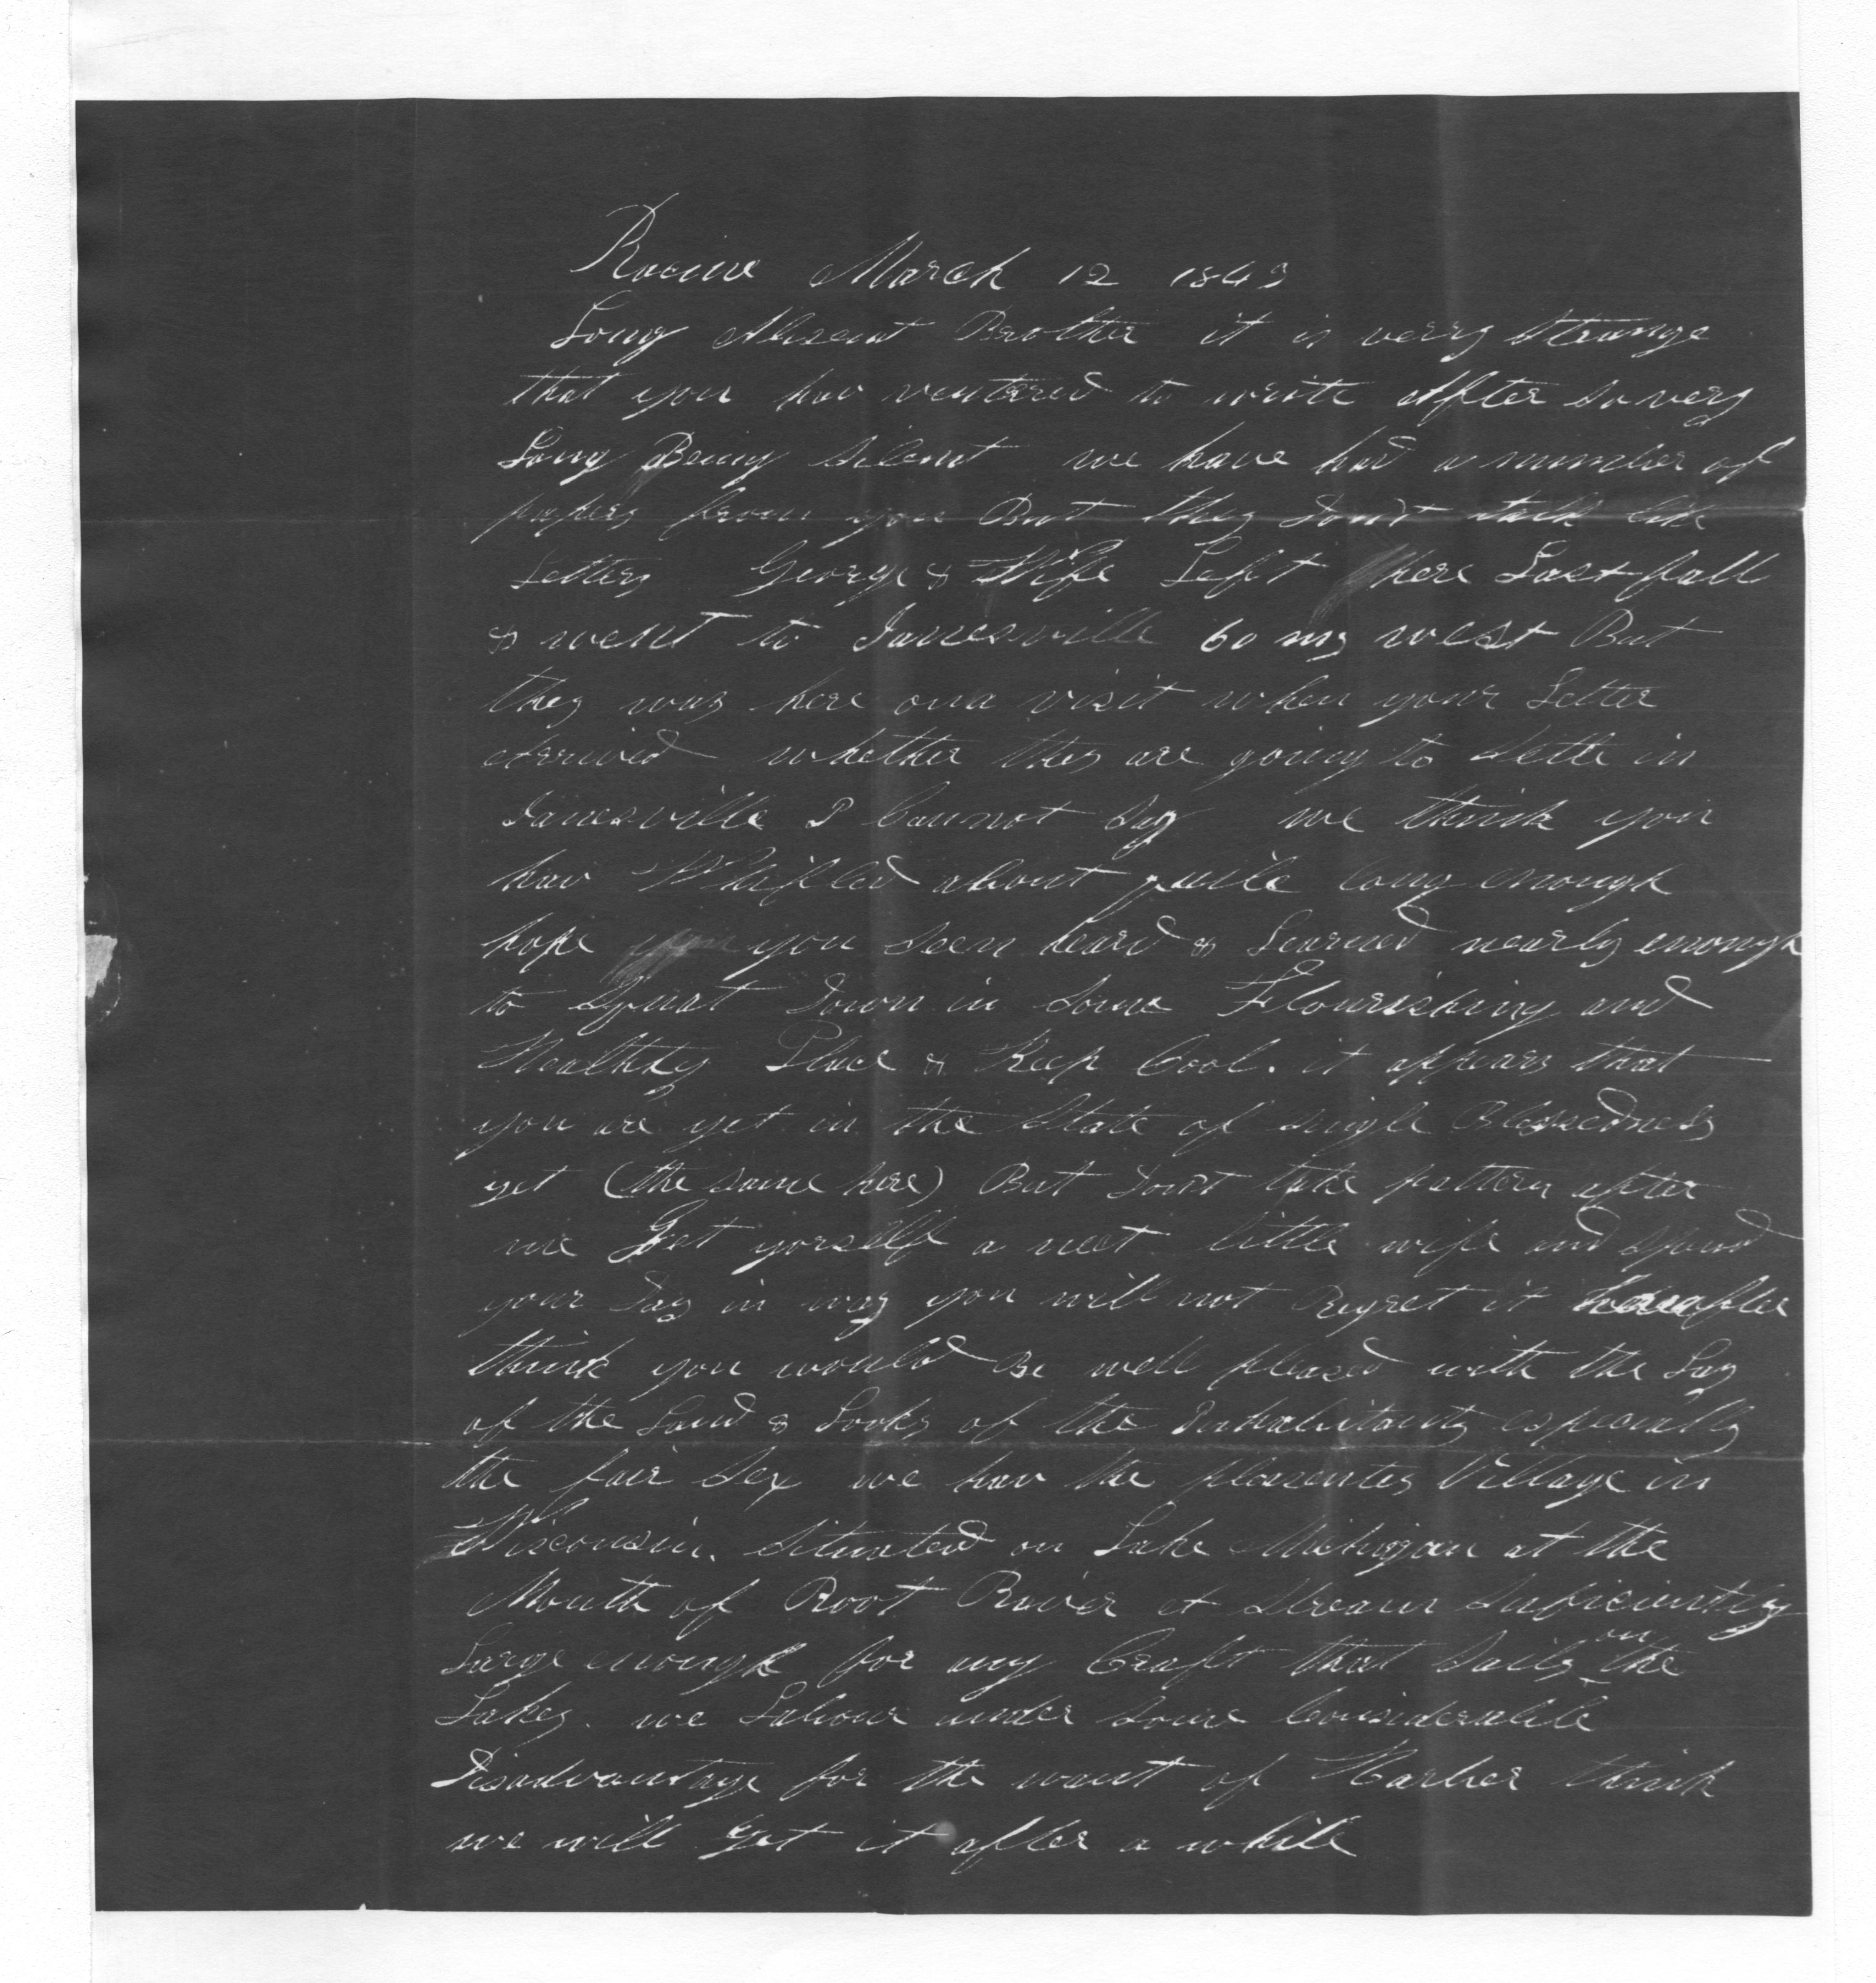 Racine March 12 1843
Long Absent Brother it is very Strange
that you hav ventered to write After so very
Long Being Silent we have had a number of
papers from you But they Dont talk like
Letters George & Wife Left here Last fall
& went to Janesville 60 ms west But
they was here on a visit when your Letter
Arrived whether they are going to settle in
Janesville I Cannot Say we think you
hav Whifled about quite long enough
hope you seen heard & Learned nearly enough
to Squat Down in Some Flourishing and
Healthy Place & Keep Cool. it appears that
you are yet in the State of single Blessedness
yet (the same here) But Dont take pattern after
me Get yorself a neet little wife and spend
your Days in way you will not Regret it hereafter
think you would Be well pleased with the Lay
of the Land & Looks of the Inhabitants especially
the fair Sex we hav the plesentes Village in
Wisconsin. Situated on Lake Michigan at the
Mouth of Root River A Stream Suficiently
Large enough for any Craft that Sails on the
Lakes. we Labour under some Considerable
Disadvantage for the want of Harber think
we will get it after a while